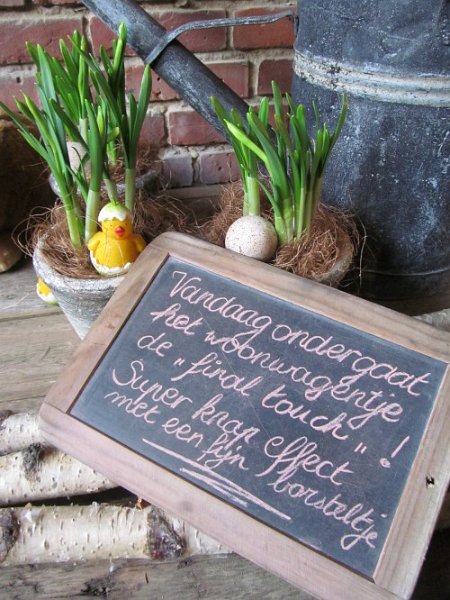 Vandaag ondergaat
het woonwagentje
de "final touch"!
Super knap effect
met een fijn borsteltje